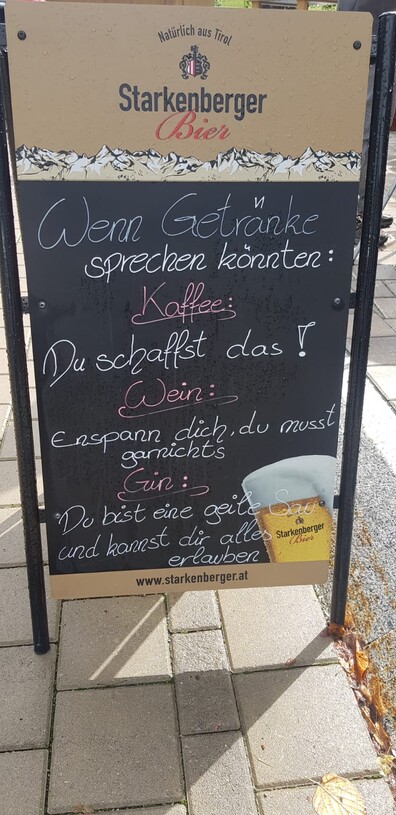 Natürlich aus Tirol
Starkenberger
Bier
Wenn Getränke
sprechen könnten:
Kaffee:
Du schaffst das!
Wein:
Enspann dich, du musst
garnichts
Gin:
Du bist eine geile Sau
und kannst dir alles
erlauben
Starkenberger
Bier
www.starkenberger.at